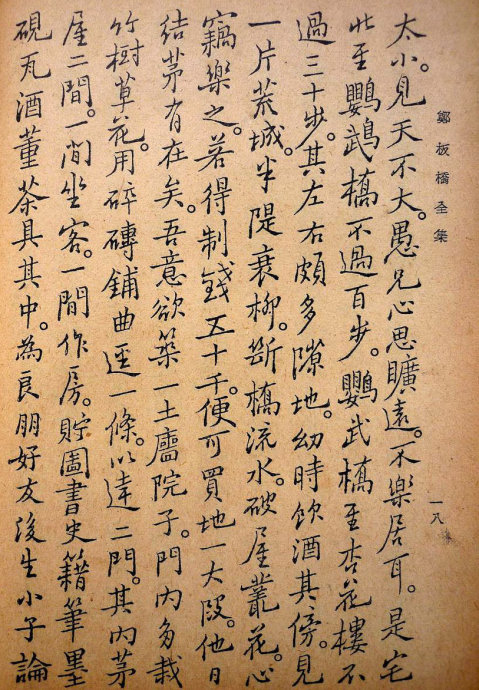 鄭板橋全集
一八
太小。見天不大。愚兄心思曠遠。不樂居耳。是宅
此至鸚鵡橋不過百步。鸚武橋至杏花樓不
過三十步。其左右頗多隙地。幼時飲酒其傍。見
一片荒城。半隄衰柳。斷橋流水。破屋叢花。心
竊樂之。若得制錢五十千。便可買地一大段。他日
結茅有在矣。吾意欲築一土廬院子。門內多栽
竹樹草花。用碎磚鋪曲逕一條。以達二門。其內茅
屋二間。一間坐客。一間作房。貯圖書史籍筆墨
硯瓦酒董茶具其中。為良朋好友後生小子論